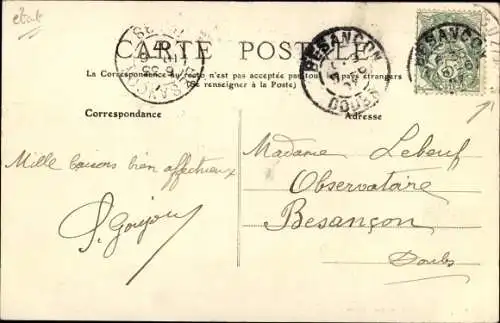 etat
CARTE POSTALE
La Correspondance au recto n'est pas acceptée par tous pays étrangers
(Se renseigner à la Poste)
BESANÇON
DOUBS
BESANÇON
Correspondance
Adresse
Mille baisers bien affectueux
Madame Lebeuf
Observatoire
Besançon
Doubs